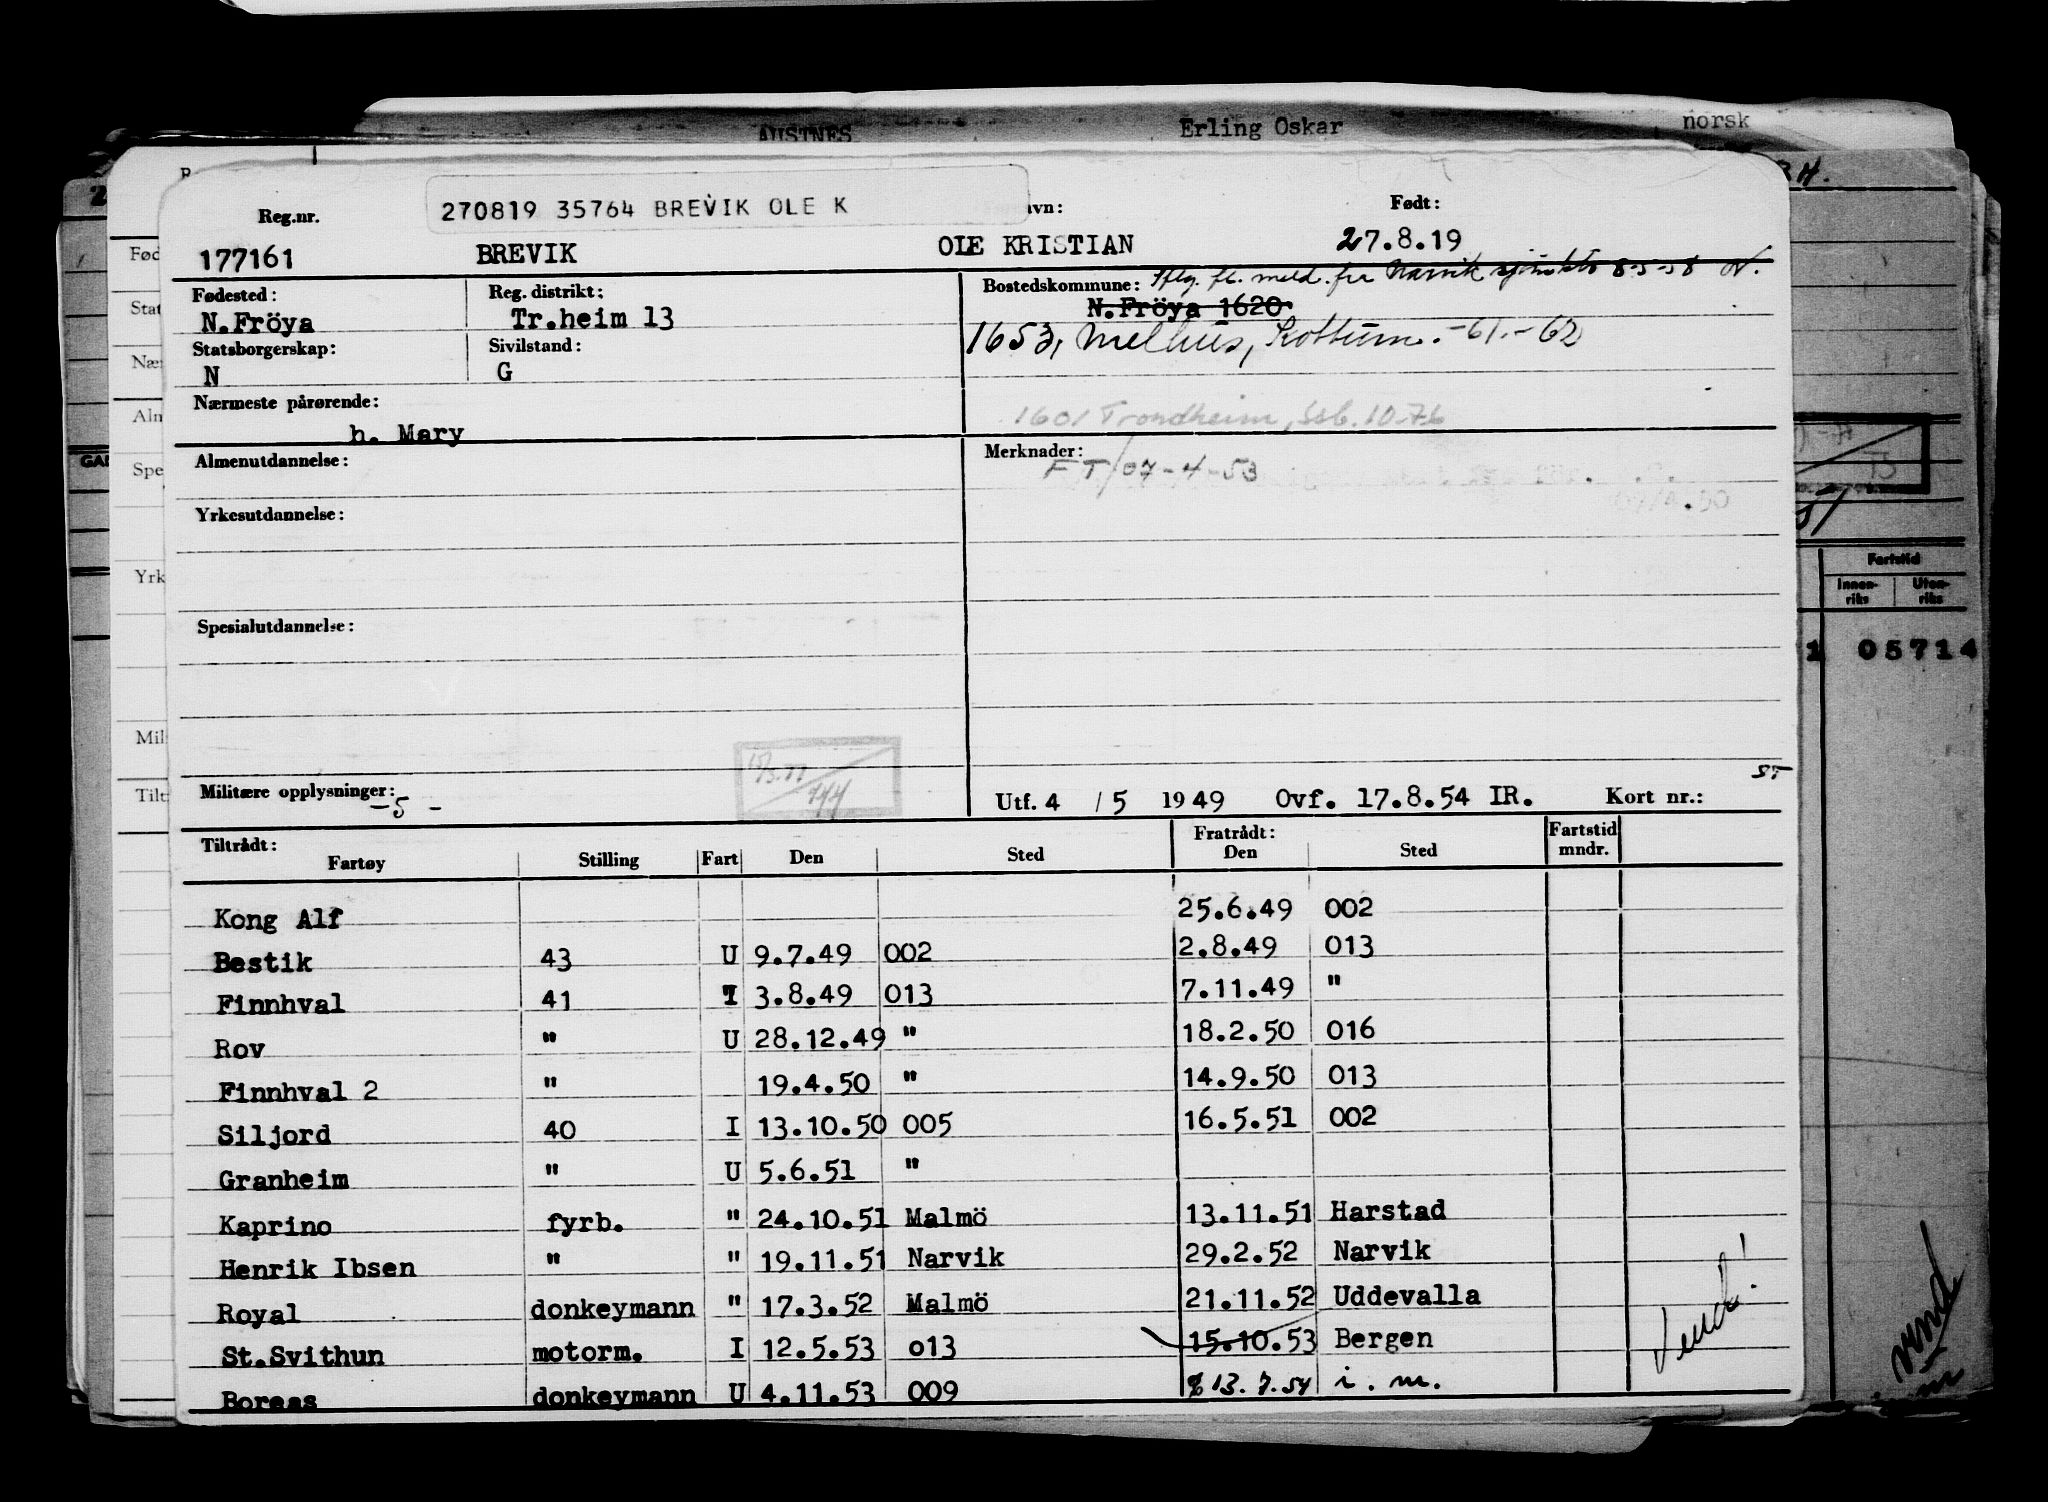 AUSTNES Erling Oskar norsk
270819 35764 BREVIK OLE K
Reg.nr. avn: Født:
177161 BREVIK OLE KRISTIAN 27.8.19
Fødested: Reg. distrikt: Bostedskommune: Iflg. fl. meld. fra Narvik 8-5-58
N.Fröya Tr.heim 13 N.Fröya 1620
Statsborgerskap: Sivilstand: 1653, Melhus, Kottum. -61.-62
N G
Nærmeste pårørende: 1601 Trondheim, Ssb. 10.76
h. Mary
Almenutdannelse: Merknader: FT/07-4-53
Yrkesutdannelse:
Spesialutdannelse:
ST
Militære opplysninger: -5- Utf. 4 / 5 1949 Ovf. 17.8.54 IR. Kort nr.:
Tiltrådt: Fratrådt: Fartstid
Fartøy Stilling Fart Den Sted Den Sted mndr.
Kong Alf 25.6.49 002
Bestik 43 U 9.7.49 002 2.8.49 013
Finnhval 41 I 3.8.49 013 7.11.49 "
Rov " U 28.12.49 " 18.2.50 016
Finnhval 2 " 19.4.50 " 14.9.50 013
Siljord 40 I 13.10.50 005 16.5.51 002
Granheim " U 5.6.51 "
Kaprino fyrb. " 24.10.51 Malmö 13.11.51 Harstad
Henrik Ibsen " " 19.11.51 Narvik 29.2.52 Narvik
Royal donkeymann " 17.3.52 Malmö 21.11.52 Uddevalla
St.Svithun motorm. I 12.5.53 o13 15.10.53 Bergen
Boreas donkeymann U 4.11.53 009 13.7.54 i.m.
Vend!
Fartstid
Innen-riks Uten-riks
1 05714
vend